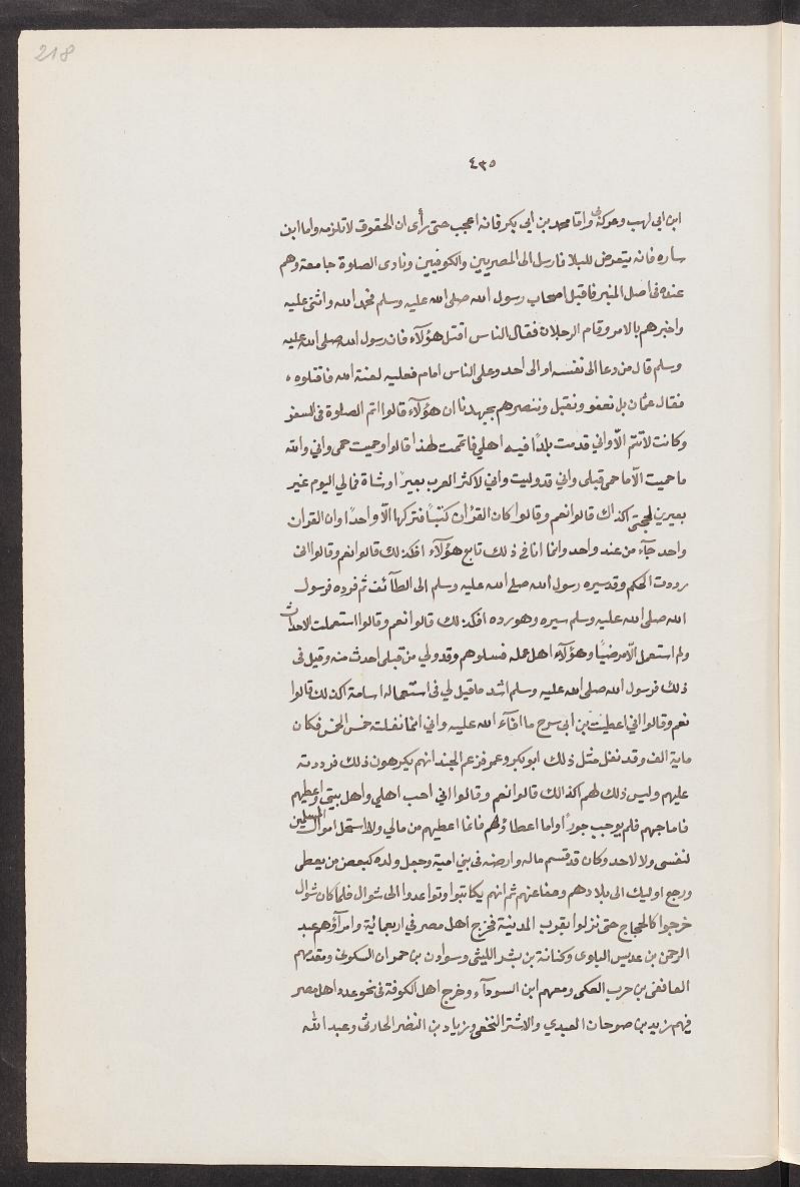 218
٤٣٥
ابن ابى لهب وعركه واما محمد بن ابى بكر فانه اعجب حتى رأى ان الحقوق لا تلزمه واما ابن
ساره فانه يتعرض للبلا فارسل الى المصريين والكوفيين ونادى الصلوة جامعة وهم
عنده فى اصل المنبر فاقبل اصحاب رسول الله صلى الله عليه وسلم فحمد الله واثنى عليه
واخبرهم بالامر وقام الرجلان فقال الناس اقتل هؤلآء فان رسول الله صلى الله عليه
وسلم قال من دعا الى نفسه او الى احد وعلى الناس امام فعليه لعنة الله فاقتلوه
فقال عثمان بل نعفو ونقبل وننصرهم بجهدنا ان هؤلآء قالوا اتم الصلوة فى السفر
وكانت لا تتم الّا وانى قدمت بلدًا فيه اهلي فاتممت لهذا قالوا وحميت حمى وانى والله
ما حميت الّا ما حمى قبلى وانى قد وليت وانى لاكثر العرب بعيرًا وشاة فمالي اليوم غير
بعيرين لحجتى اكذاك قالوا نعم وقالوا كان القرٔان كتبًا فتركها الّا واحدًا وان القران
واحد جآء من عند واحد وانما انا فى ذلك تابع هؤلآء افكذلك قالوا نعم وقالوا انى
رددت الحكم وقد سيره رسول الله صلى الله عليه وسلم الى الطآئف ثم فرده فرسول
الله صلى الله عليه وسلم سيره وهو رده افكذلك قالوا نعم وقالوا استعملت الاحداث
ولم استعمل الّا مرضيًا وهؤلآء اهل عمله فسلوهم وقد ولي من قبلى احدث منه وقيل فى
ذلك فرسول الله صلى الله عليه وسلم اشد ما قيل لي فى استعماله اسامة اكذلك قالوا
نعم وقالوا انى اعطيت بن ابى سرح ما افآء الله عليه وانى انما نفلته خمس الخمس فكان
ماية الف وقد نفل مثل ذلك ابو بكر وعمر فزعم الجند انهم يكرهون ذلك فرددته
عليهم وليس ذلك لهم اكذالك قالوا نعم وقالوا انى احب اهلي واهل بيتى واعطيهم
فاما حبهم فلم يوجب جورًا واما اعطاؤهم فانما اعطيهم من مالي ولا استحل اموال المسلمين
لنفسى ولا لاحد وكان قد قسم ماله وارضه فى بنى امية وجعل ولده كبعض من يعطى
ورجع اوليك الى بلادهم وصفا عنهم ثم انهم يكاتبوا وتواعدوا الى شوال فلما كان شوال
خرجوا كالحجاج حتى نزلوا بقرب المدينة فخرج اهل مصر في اربعمائة وامرآؤهم عبد
الرحمن بن عديس البلوى وكنانة بن بشر الليثى وسوادن بن حمران السكونى ومقدمهم
الغافقى بن حرب العكى ومعهم ابن السودآء وخرج اهل الكوفة فى نحو عدد اهل مصر
فيهم زيد بن صوحان العبدي والاشتر النخعى وزياد بن النضر الحارثى وعبد الله